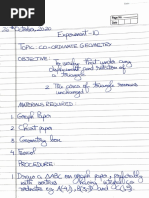 Page No.
Date
20th October, 2020
Experiment - 10
TOPIC : CO-ORDINATE GEOMETRY
OBJECTIVE : To verify that under any
displacement and rotation of
a triangle
2. The area of triangle remains
unchanged
MATERIALS REQUIRED :
1. Graph Paper
2. Chart paper
3. Geometry box
4. Pencil
PROCEDURE :
1. Draw a ΔABC on graph paper, preferably
with vertices having integral co-
ordinates